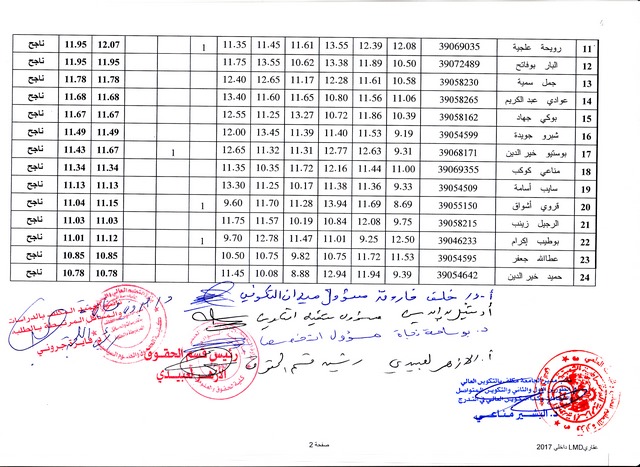 11 رويحة علجية 39069035 12.08 12.39 13.55 11.61 11.45 11.35 1 12.07 11.95 ناجح
12 البار بوفاتح 39072489 10.50 11.89 13.38 10.62 13.55 11.75 11.95 11.95 ناجح
13 جمل سمية 39058230 10.58 11.61 12.28 11.17 12.65 12.40 11.78 11.78 ناجح
14 عوادي عبد الكريم 39058265 11.06 11.56 10.80 11.65 11.60 13.40 11.68 11.68 ناجح
15 بوكي جهاد 39058162 10.39 11.86 10.72 13.27 11.25 12.55 11.67 11.67 ناجح
16 شبرو جويدة 39054599 9.19 11.53 11.40 11.39 13.45 12.00 11.49 11.49 ناجح
17 بوستيو خير الدين 39068171 9.31 12.63 12.77 11.31 11.32 12.65 1 11.67 11.43 ناجح
18 مناعي كوكب 39069355 11.00 11.44 12.16 11.72 10.35 11.35 11.34 11.34 ناجح
19 سايب أسامة 39054509 9.33 11.36 11.38 10.17 11.25 13.30 11.13 11.13 ناجح
20 قروي أشواق 39055150 8.69 11.69 13.94 11.28 11.70 9.60 1 11.15 11.04 ناجح
21 الرجيل زينب 39058215 9.75 12.08 10.84 10.19 11.57 11.75 11.03 11.03 ناجح
22 بوطيب إكرام 39046233 12.50 9.25 11.01 11.47 12.78 9.70 1 11.12 11.01 ناجح
23 عطاالله جعفر 39054595 11.53 11.72 10.75 9.82 10.75 10.50 10.85 10.85 ناجح
24 حميد خير الدين 39054642 9.39 11.94 12.94 8.88 10.08 11.45 10.78 10.78 ناجح
أ.د. خلف فاروق مسؤول ميدان التكوين
مسؤول شعبة التكوين
مسؤول التخصص
أ. الأزهر لعبيدي رئيس قسم الحقوق
رئيس قسم الحقوق
الأزهر لعبيدي
د. البشير مناعي
صفحة 2
عقاري LMD داخلي 2017